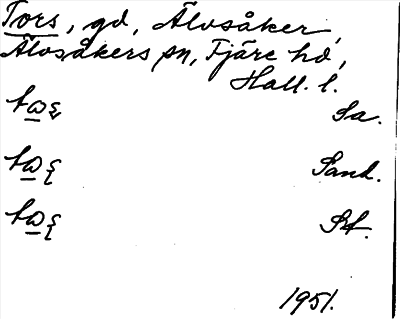 Tors, gd, Älvsåker,
Älvsåkers sn, Fjäre hd,
Hall. l.
Sa.
Sand.
Srf.
1951.